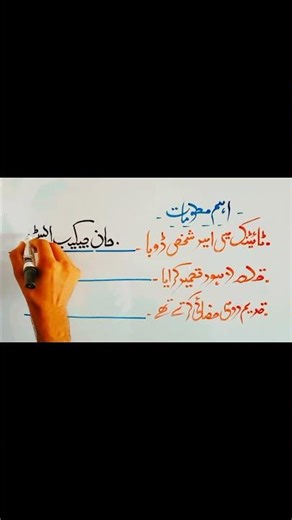 اہم معلومات
ٹائٹنک میں امیر شخص ڈوبا ۔ جان جیکب اسٹ
قلعہ لاہور تعمیر کرایا ۔
قدیم رومی صفائی کرتے تھے ۔